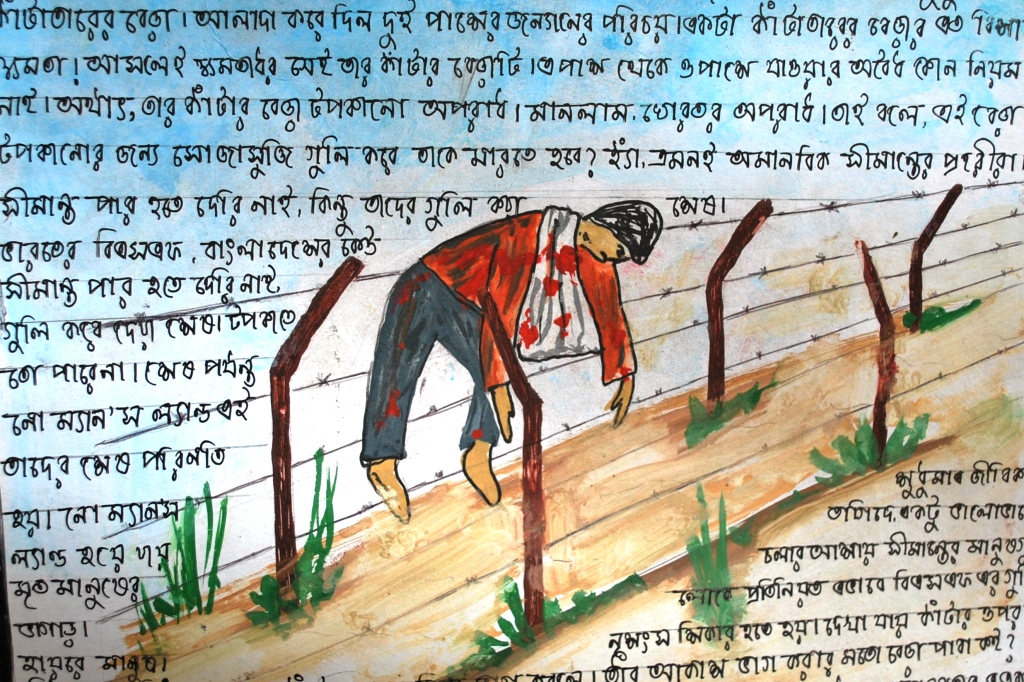 কাঁটাতারের বেড়া। আলাদা করে দিল দুই পাশের জনগনের পরিচয়। একটা কাঁটাতারের বেড়ার এত
ক্ষমতা। আসলেই ক্ষমতাধর সেই তার কাঁটার বেড়াটি। এপাশ থেকে ওপাশে যাওয়ার অবৈধ কোন নিয়ম
নাই। অর্থাৎ, তার কাঁটার বেড়া টপকানো অপরাধ। মানলাম, ঘোরতর অপরাধ। তাই বলে, এই বেড়া
টপকানোর জন্য সোজাসুজি গুলি করে তাকে মারতে হবে? হ্যাঁ, এমনই অমানবিক সীমান্তের প্রহরীরা।
সীমান্ত পার হতে দেরি নাই, কিন্তু তাদের গুলি করা শেষ।
ভারতের বিএসএফ, বাংলাদেশের কেউ
সীমান্ত পার হতে দেরি নাই,
গুলি করে দেয়া শেষ। টপকাতে
তো পারেনা। শেষ পর্যন্ত
নো ম্যান'স ল্যান্ড এই
তাদের শেষ পরিণতি
হয়। নো ম্যানস
ল্যান্ড হয়ে যায়
মৃত মানুষের
ভাগাড়।
হায়রে মানুষ।
শুধুমাত্র জীবিকা
তাগিদে, একটু ভালোভাবে
চলার আশায় সীমান্তের মানুষ
প্রতিনিয়ত এভাবে বিএসএফ এর গুলি
নৃশংস শিকার হতে হয়। দেখা যায় কাঁটার ওপর
তার আকাশ ভাগ করার মতো বেড়া পাবা কই?